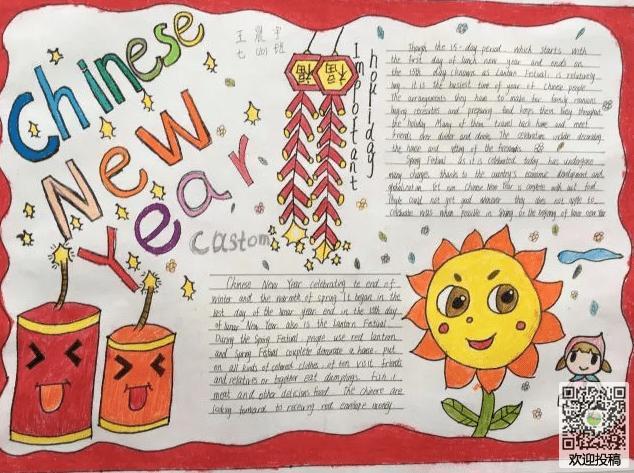 Chinese
New
Year
Castom
王晨宇
七四班
福
福
Important
holiday
Though the 15-day period, which starts with
the first day of lunar new year and ends on
the 15th day (known as Lantern Festival) is relatively
long, it is the busiest time of year of Chinese people
the arrangements they have to make for family reunions
buying necessities and preparing food keeps them busy throughout
the holiday Many of them travel back home and meet
friends over dinner and drinks. The celebration include decorating
the house and
Spring Festival as it is celebrated today has undergone
many changes thanks to the country's economic development and
Chinese New Year celebrating to end of
winter and the warmth of spring. It began in the
last day of the lunar year, end in the 15th day
of lunar New Year, also is the Lantern Festival.
During the Spring Festival people use red lantern
and Spring Festival couplets decorate a house put
on all kinds of colored clothes, often visit friends
and relatives or together eat dumplings fish
meat and other delicious food. The Chinese are
looking forward to receiving red envelope money
欢迎投稿